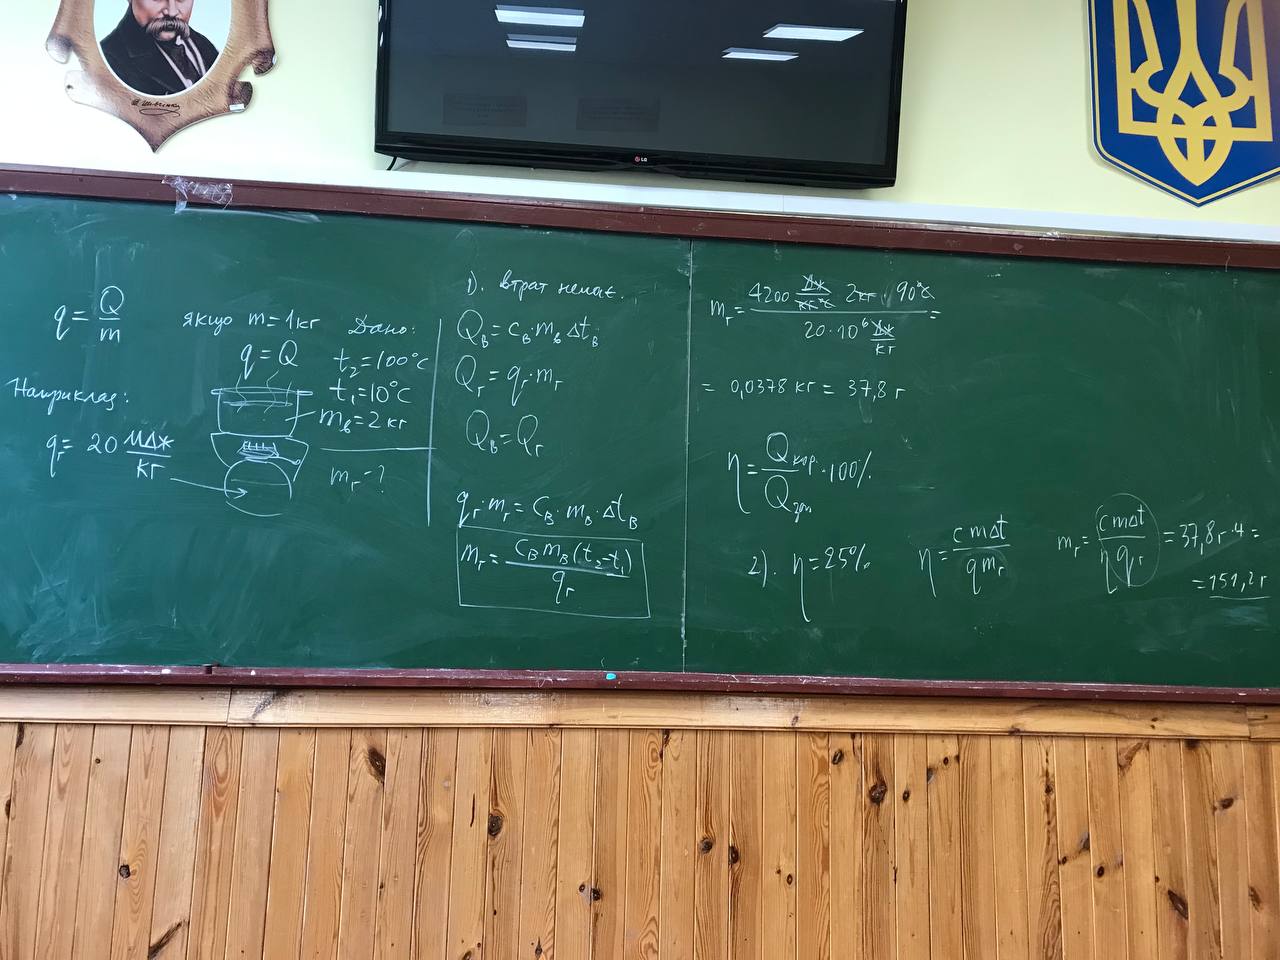 Ш. Шевченко
LG
q = Q/m
якщо m = 1 кг
q = Q
Наприклад:
qг = 20 МДж/кг
Дано:
t₂ = 100°C
t₁ = 10°C
mв = 2 кг
mг - ?
1). втрат немає.
Qв = cв · mв Δtв
Qг = qг · mг
Qв = Qг
qг · mг = cв · mв · Δtв
mг = cв mв (t₂ - t₁)/qг
mг = 4200 Дж/кг °C · 2 кг · 90 °C / 20 · 10⁶ Дж/кг =
= 0,0378 кг = 37,8 г
η = Qкор./Qзат · 100%
2). η = 25%
η = c m Δt / q mг
mг = c m Δt / η qг = 37,8 г · 4 =
= 151,2 г